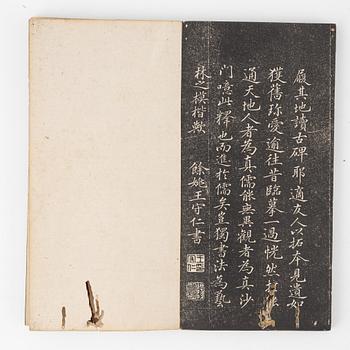 屐其地讀古碑耶適友人以拓本見遺如
獲舊珎愛逾往昔臨摹一過恍然
通天地人者為真儒能無異觀者為真沙
門噫此釋也而進於儒矣豈獨書法為藝
林之模楷歟 餘姚王守仁書